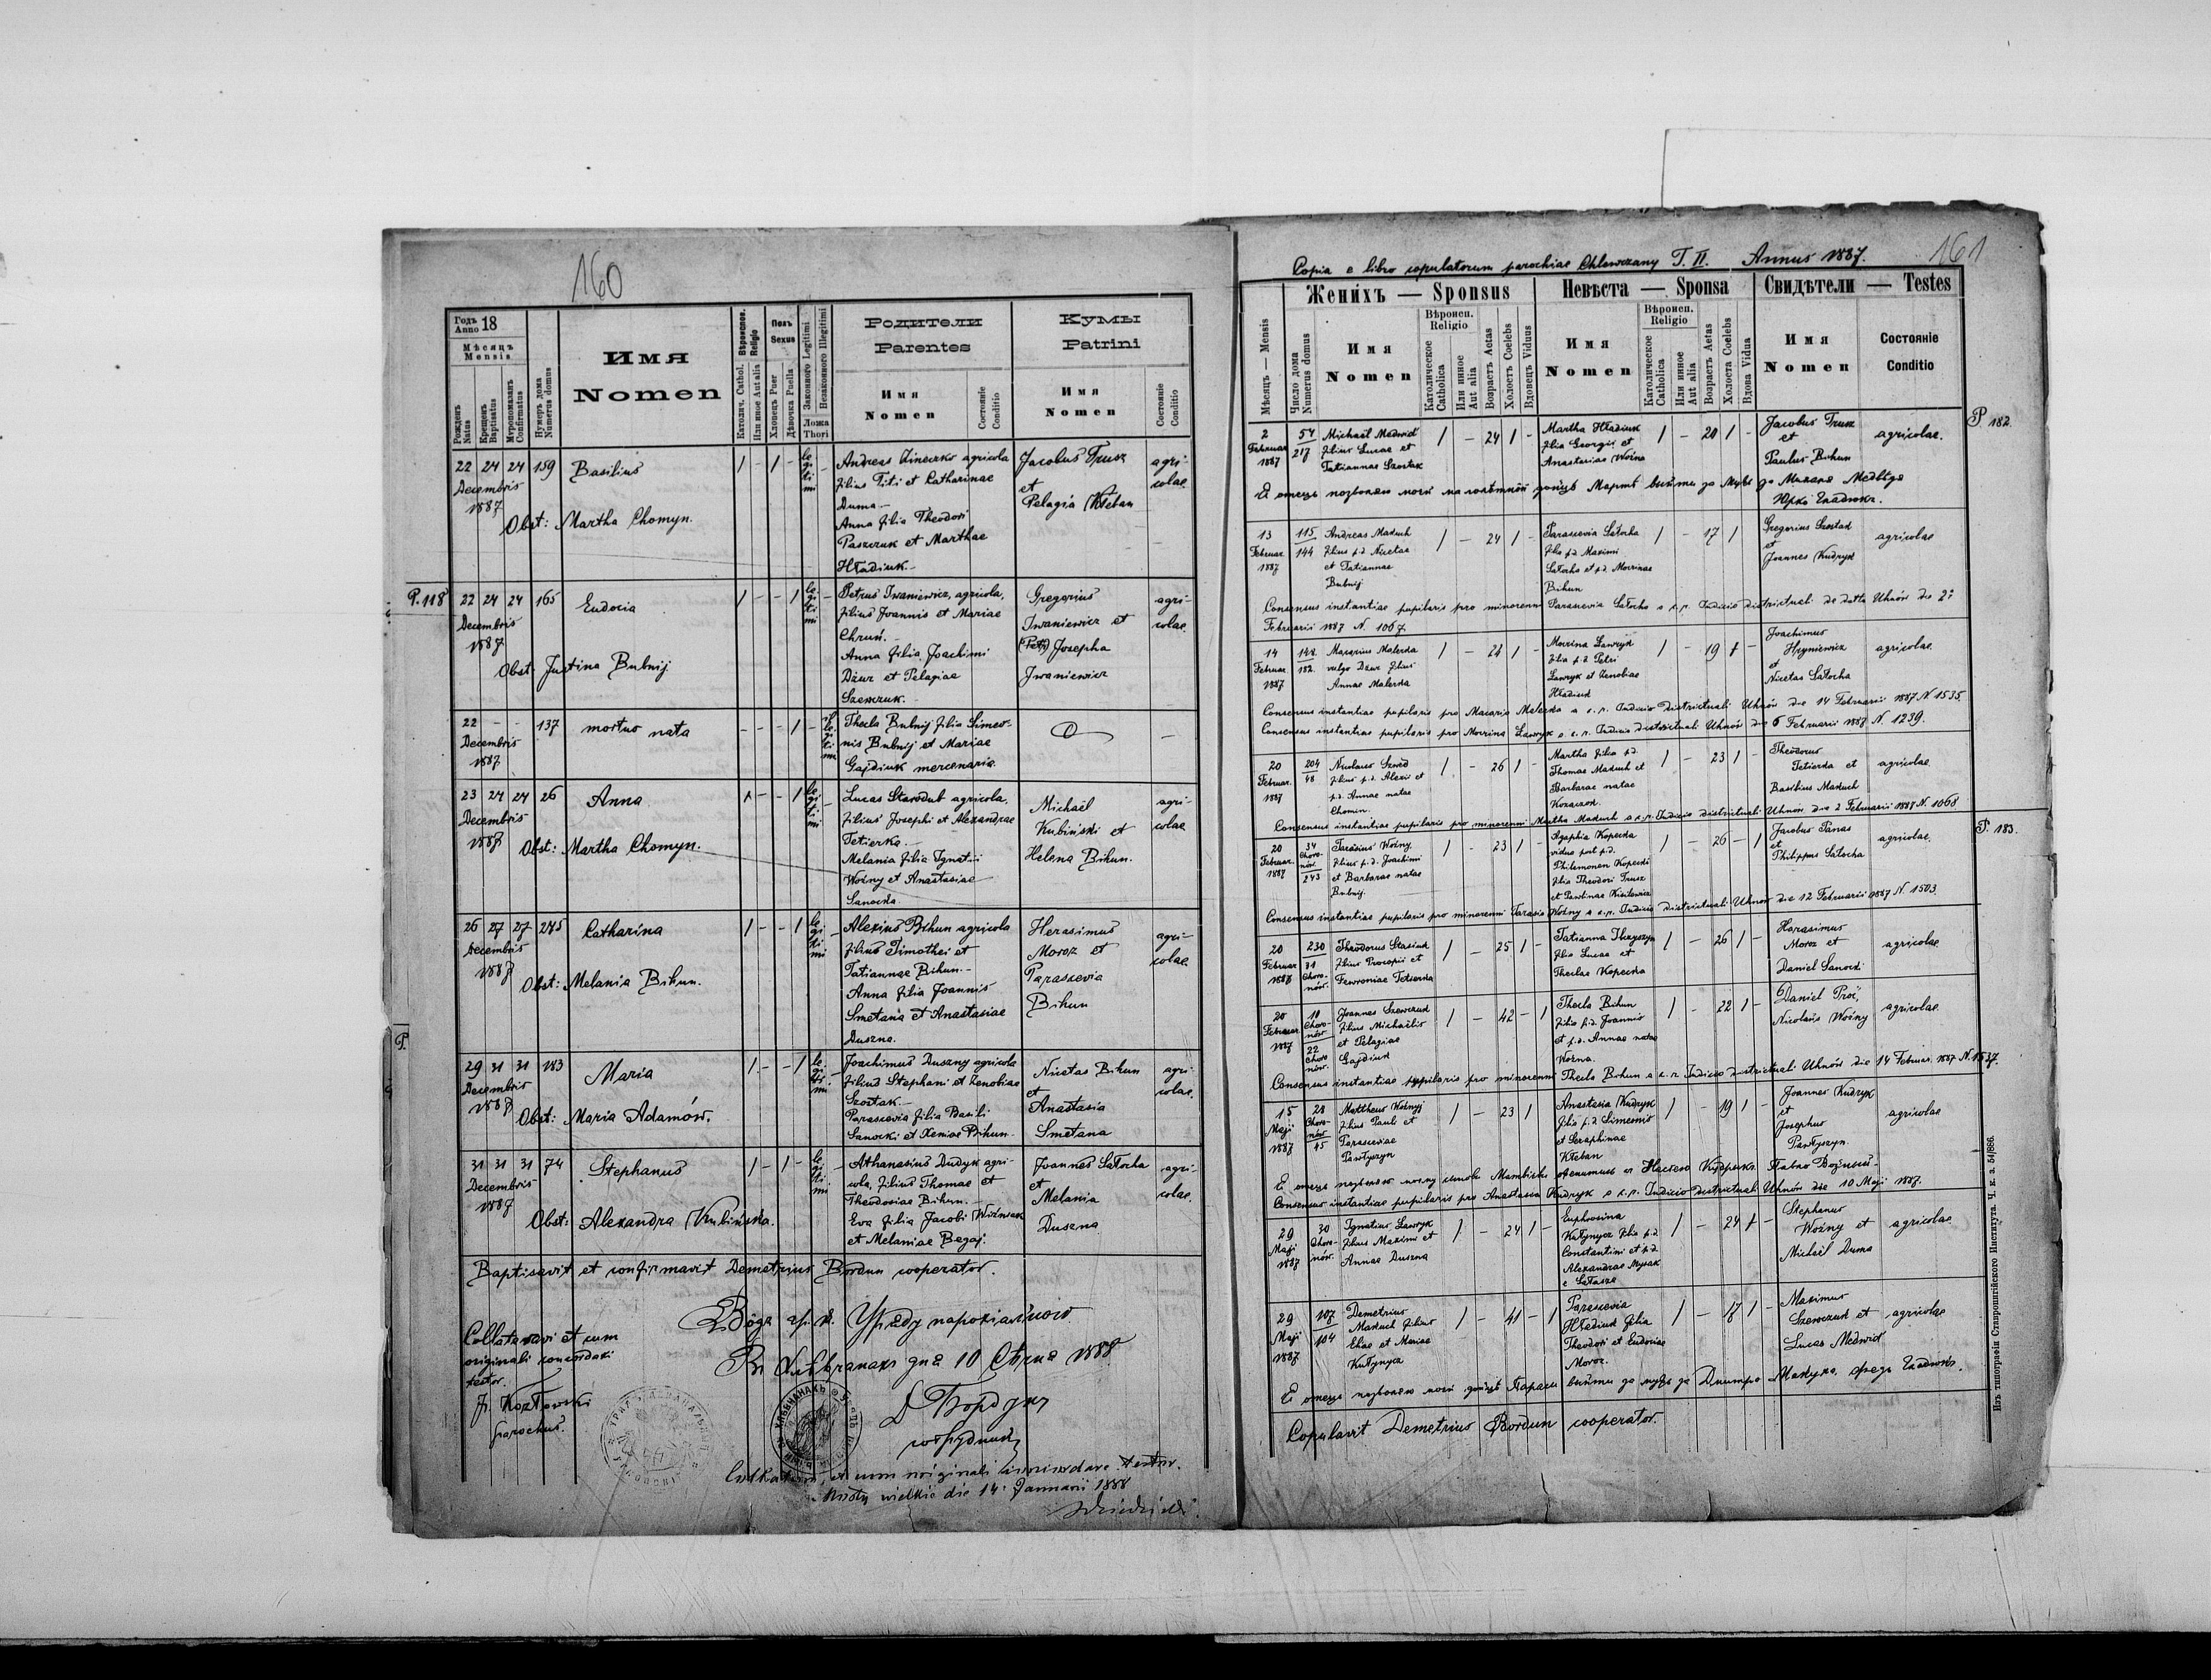 160
Годъ Anno 18
Мѣсяцъ Mensis
Рожденъ Natus
Крещенъ Baptisatus
Мѵропомазанъ Confirmatus
Нумеръ дома Numerus domus
Имя
Nomen
Вѣроиспов. Religio
Католич. Cathol.
Или иное Aut alia
Полъ Sexus
Хлопецъ Puer
Дѣвочка Puella
Законного Legitimi
Незаконного Illegitimi
Ложа Thori
Родители
Parentes
Имя
Nomen
Состояніе Conditio
Кумы
Patrini
Имя
Nomen
Состояніе Conditio
22 24 24 159 Basilius 1 - 1 - legitimi -
Decembris
1887
Obst: Martha Chomyn.
Andreas Zineczko agricola
filius Titi et Catharinae
Duma -
Anna filia Theodori
Paszczuk et Marthae
Hładiuk.-
Jacobus Trusz
et
Pelagia Kłeban
agricolae
P. 118
22 24 24 165 Eudocia 1 - - 1 legitimi -
Decembris
1887
Obst: Justina Bubnij
Petrus Iwaniewicz, agricola,
filius Joannis et Mariae
Chruń.-
Anna filia Joachimi
Dżur et Pelagiae
Szewczuk.-
Gregorius
Iwaniewicz et
(Petri) Josepha
Iwaniewicz
agricolae
22 - - 137 mortuo nata - - - 1 - illegitimi
Decembris
1887
Thecla Bubnij filia Simeonis
Bubnij et Mariae
Gajdiuk mercenaria.
23 24 24 26 Anna 1 - - 1 legitimi -
Decembris
1887
Obst: Martha Chomyn.
Lucas Starodub agricola,
filius Josephi et Alexandrae
Tetierka.-
Melania filia Ignatii
Woźny et Anastasiae
Sanocka.
Michael
Kubiński et
Helena Bihun.
agricolae
26 27 27 245 Catharina 1 - - 1 legitimi -
Decembris
1887
Obst: Melania Bihun.
Alexius Bihun agricola
filius Timothei et
Tatiannae Bihun.-
Anna filia Joannis
Smetana et Anastasiae
Duszna.
Herasimus
Moroz et
Parascevia
Bihun
agricolae
P.
29 31 31 183 Maria 1 - - 1 legitimi -
Decembris
1887
Obst: Maria Adamów.
Joachimus Duszny agricola
filius Stephani et Zenobiae
Szostak.-
Parascevia filia Basili
Sanocki et Xeniae Bihun.
Nicetas Bihun
et
Anastasia
Smetana
agricolae
31 31 31 74 Stephanus 1 - 1 - legitimi -
Decembris
1887
Obst: Alexandra Kubińska.
Athanasius Dudyk agricola,
filius Thomae et
Theodosiae Bihun.-
Eva filia Jacobi Woźniak
et Melaniae Begaj.
Joannes Sałocha
et
Melania
Duszna
agricolae
Baptisavit et confirmavit Demetrius Bordun cooperator.
Collatavi et cum
originali concordari
testor.
J. Kozłowski
parochus.
10 1888
Д Бордун
сотрудникъ
die 14 Januarii 1888
161
Copia e libro copulatorum parochiae Chlewczany T. II. Annus 1887.
Женихъ — Sponsus
Невѣста — Sponsa
Свидѣтели — Testes
Мѣсяцъ — Mensis
Число дома Numerus domus
Имя
Nomen
Вѣроисп. Religio
Католическое Catholica
Или иное Aut alia
Возрастъ Aetas
Холостъ Coelebs
Вдовецъ Viduus
Имя
Nomen
Вѣроисп. Religio
Католическое Catholica
Или иное Aut alia
Возрастъ Aetas
Холоста Coelebs
Вдова Vidua
Имя
Nomen
Состояніе
Conditio
P 182.
2
Februar.
1887
54
217
Michael Medwid
filius Lucae et
Tatiannae Szostak
1 - 24 1 -
Martha Hładiuk
filia Georgii et
Anastasiae Woźna
1 - 20 1 -
Jacobus Trusz
et
Paulus Bihun
agricolae.
13
Februar.
1887
115
144
Andreas Makuch
filius p.d. Nicetae
et Tatiannae
Bubnij
1 - 24 1 -
Parascevia Sałocha
filia p.d. Maximi
Sałocha et p.d. Mocrinae
Bihun
1 - 17 1
Gregorius Szostak
et
Joannes Kudryk
agricolae
Consensus instantiae pupilaris pro minorenni Parascevia Sałocha a c.r. Judicio districtuali de datto Uhnów die 2
Februarii 1887 N. 1067.
14
Februar.
1887
148
182.
Macarius Malecka
vulgo Dżur filius
Annae Malecka
1 - 24 1 -
Mocrina Ławryk
filia p.d. Petri
Ławryk et Zenobiae
Hładiuk
1 - 19 1 -
Joachimus
Hryniewicz
et
Nicetas Sałocha
agricolae.
Consensus instantiae pupilaris pro Macario Malecka a c.r. Judicio districtuali Uhnów die 14 Februarii 1887 N. 1535.
Consensus instantiae pupilaris pro Mocrina Ławryk a c.r. Judicio districtuali Uhnów die 6 Februarii 1887 N. 1239.
20
Februar.
1887
204
48
Nicolaus Szwed
filius p.d. Alexii et
p.d. Annae natae
Chomin.
1 - 26 1 -
Martha filia p.d.
Thomae Makuch et
Barbarae natae
Kozaczok.
1 - 23 1 -
Theodorus
Tetierka et
Basilius Makuch
agricolae
Consensus instantiae pupilaris pro minorenni Martha Makuch a c.r. Judicio districtuali Uhnów die 2 Februarii 1887 N. 1068
P. 183.
20
Februar.
1887
34
Choronów
243
Tarasius Woźny,
filius p.d. Joachimi
et Barbarae natae
Bubnij.
1 - 23 1 -
Agaphia Kopecka
vidua post p.d.
Philemonem Kopecki
filia Theodori Trusz
et Pawlinae Kisilewicz
1 - 26 - 1
Jacobus Panas
et
Philippus Sałocha
agricolae.
Consensus instantiae pupilaris pro minorenni Tarasio Woźny a c.r. Judicio districtuali Uhnów die 12 Februarii 1887 N. 1503.
20
Februar.
1887
230
31
Choronów.
Theodorus Stasiuk
filius Procopii et
Fewroniae Tetierka
1 - 25 1 -
Tatianna Ihryszyn
filia Lucae et
Theclae Kopecka
1 - 26 1 -
Harasimus
Moroz et
Daniel Sanocki
agricolae
20
Februar.
1887
10
Choronów
22
Choronów.
Joannes Szewczuk
filius Michaelis
et Pelagiae
Gajdiuk
1 - 42 - 1
Thecla Bihun
filia p.d. Joannis
et p.d. Annae natae
Woźna.
1 - 22 1 -
Daniel Proć,
Nicolaus Woźny
agricolae.
Consensus instantiae pupilaris pro minorenni Thecla Bihun a c.r. Judicio districtuali Uhnów die 14 Februar. 1887 N. 1537.
15
Maji
1887
28
Choronów
45
Mattheus Woźnyj
filius Pauli et
Parasceviae
Pawłyszyn
1 - 23 1
Anastasia Kudryk
filia p.d. Simeonis
et Seraphinae
Kłeban
1 - 19 1 -
Joannes Kudryk
et
Josephus
Pawłyszyn.
agricolae
Consensus instantiae pupilaris pro Anastasia Kudryk a c.r. Judicio districtuali Uhnów die 10 Maji 1887.
29
Maji
1887
30
Choronów.
Ignatius Ławryk
filius Maximi et
Annae Duszna
1 - 24 1 -
Euphrosina
Kułynycz filia p.d.
Constantini et p.d.
Alexandrae Mysak
1 - 24 1 -
Stephanus
Woźny et
Michail Duma
agricolae
29
Maji
1887
107
104
Demetrius
Makuch filius
Eliae et Mariae
Kułynycz
1 - 41 - 1
Parascevia
Hładiuk filia
Theodori et Eudociae
Moroz.
1 - 17 1 -
Maximus
Szewczuk et
Lucas Medwid
agricolae
Copulavit Demetrius Bordun cooperator.
Изъ типографіи Ставропигійского Института. Ч. к. з. 54/886.